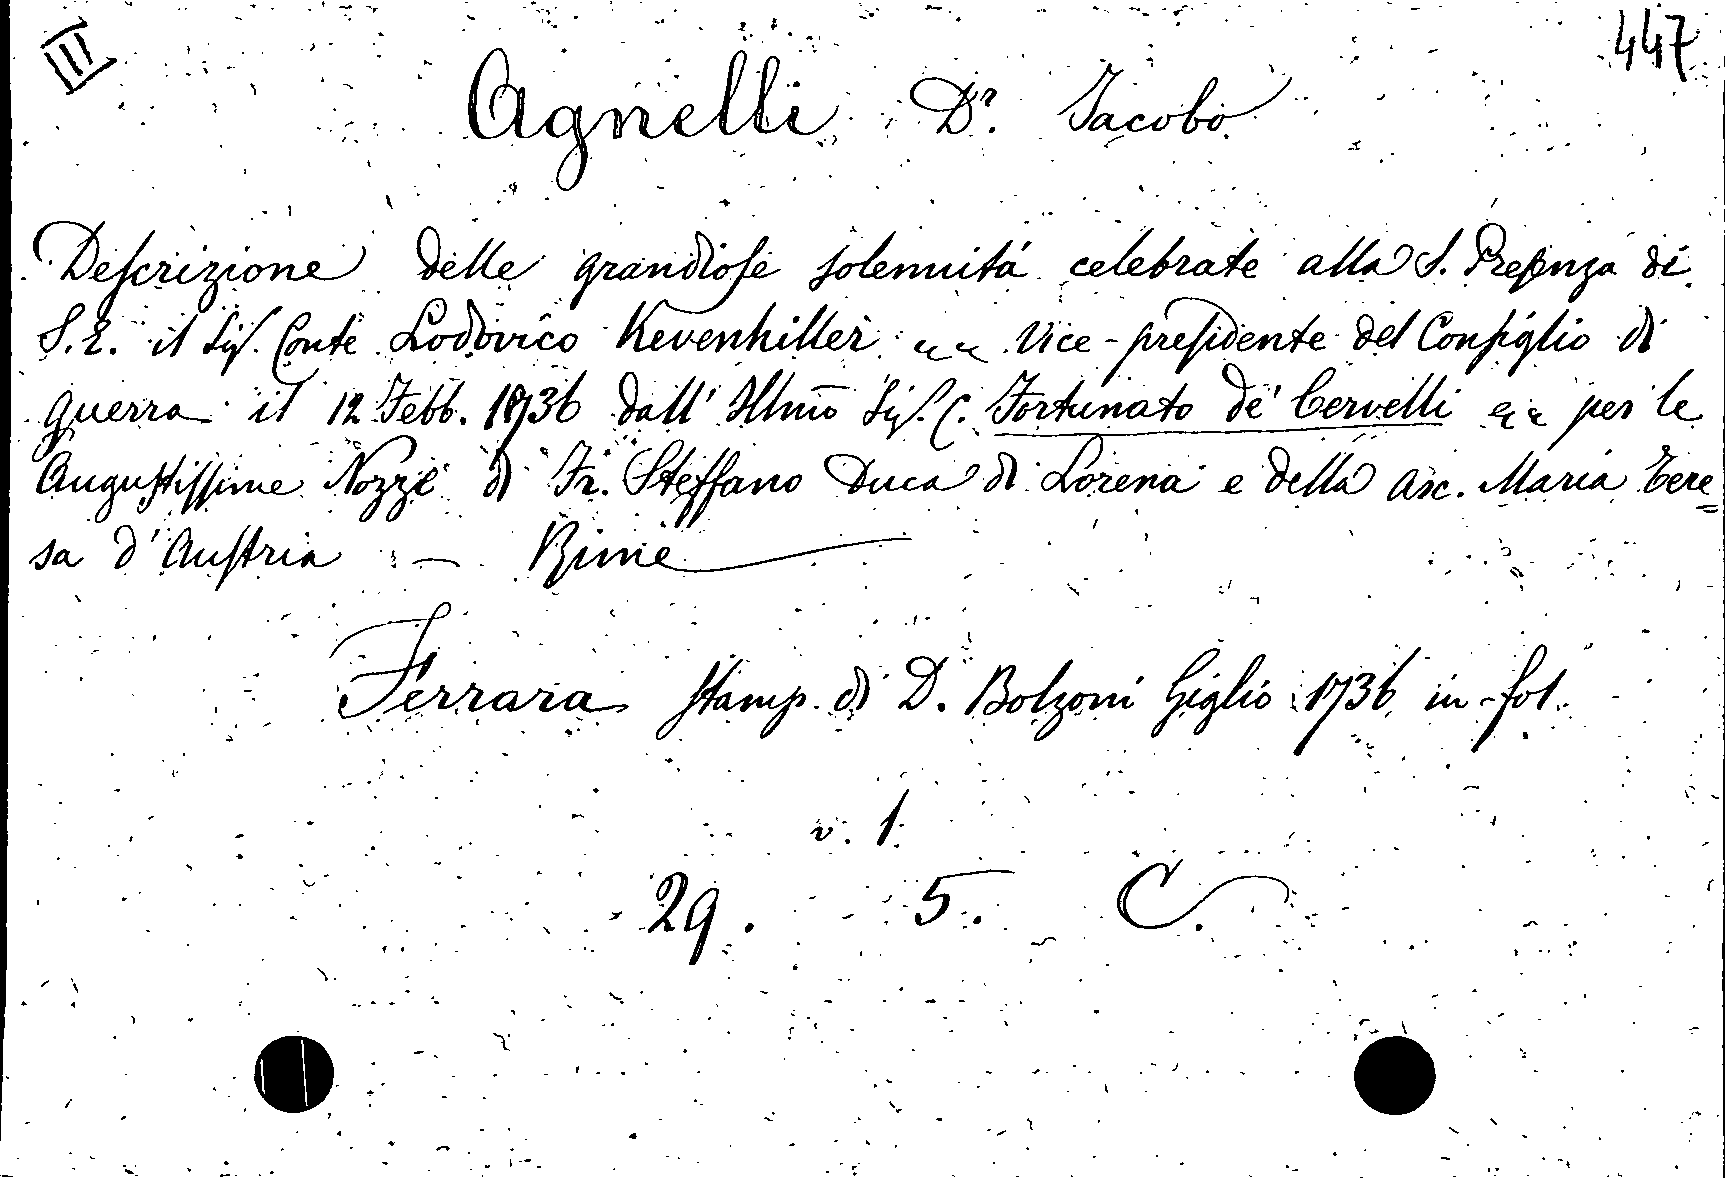 III
447
Agnelli Dr. Jacobo
Descrizione delle grandiose solennitá celebrate alla S. Presenza di
S. E. il Sig. Conte Lodovico Kevenhiller Vice-presidente del Consiglio di
guerra il 12 Febb. 1736 dall' Illmo Sig. C. Fortunato de' Cervelli per le
Augustissime Nozze di Fr. Steffano Duca di Lorena e della Arc. Maria Tere=
sa d'Austria — Rime
Ferrara Stamp. di D. Bolzoni Giglio 1736 in-fol.
v. 1.
29. 5. C.